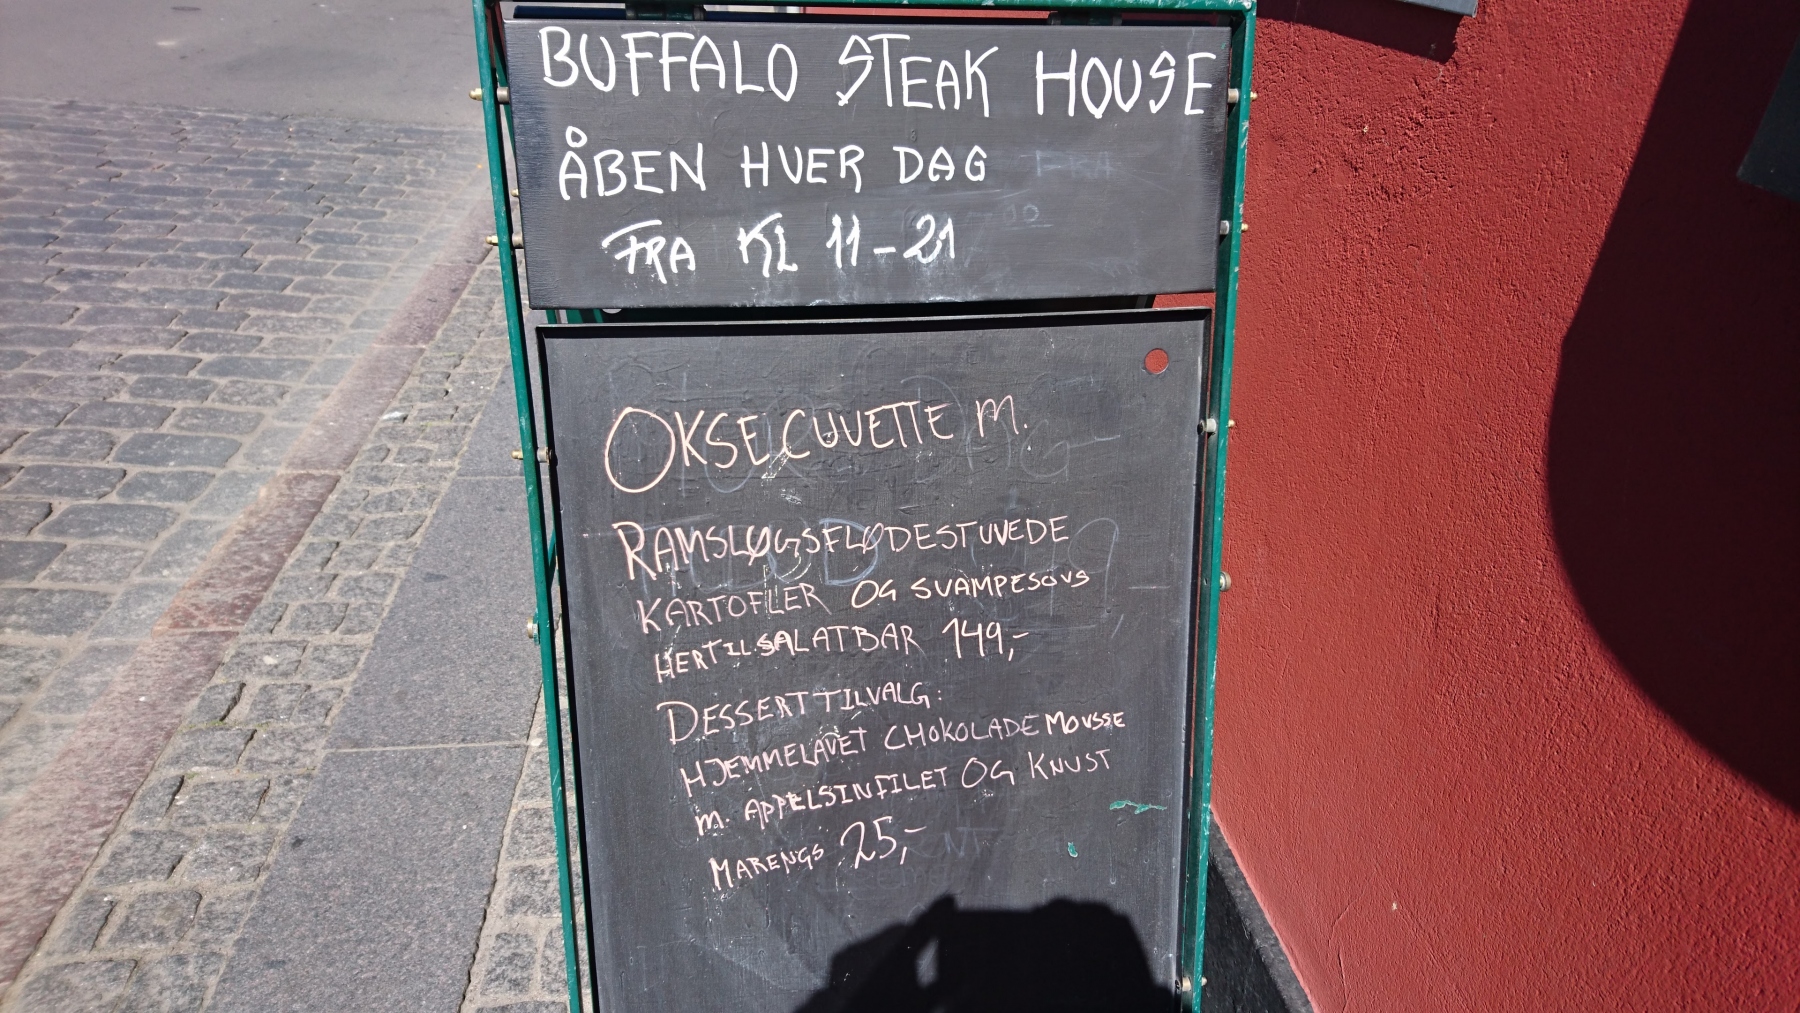 BUFFALO STEAK HOUSE
ÅBEN HVER DAG
FRA KL 11-21
OKSECUVETTE M.
RAMSLØGSFLØDESTUVEDE
KARTOFLER OG SVAMPESOVS
HERTIL SALATBAR 149,-
DESSERT TILVALG:
HJEMMELAVET CHOKOLADEMOUSSE
M. APPELSINFILET OG KNUST
MARENGS 25,-